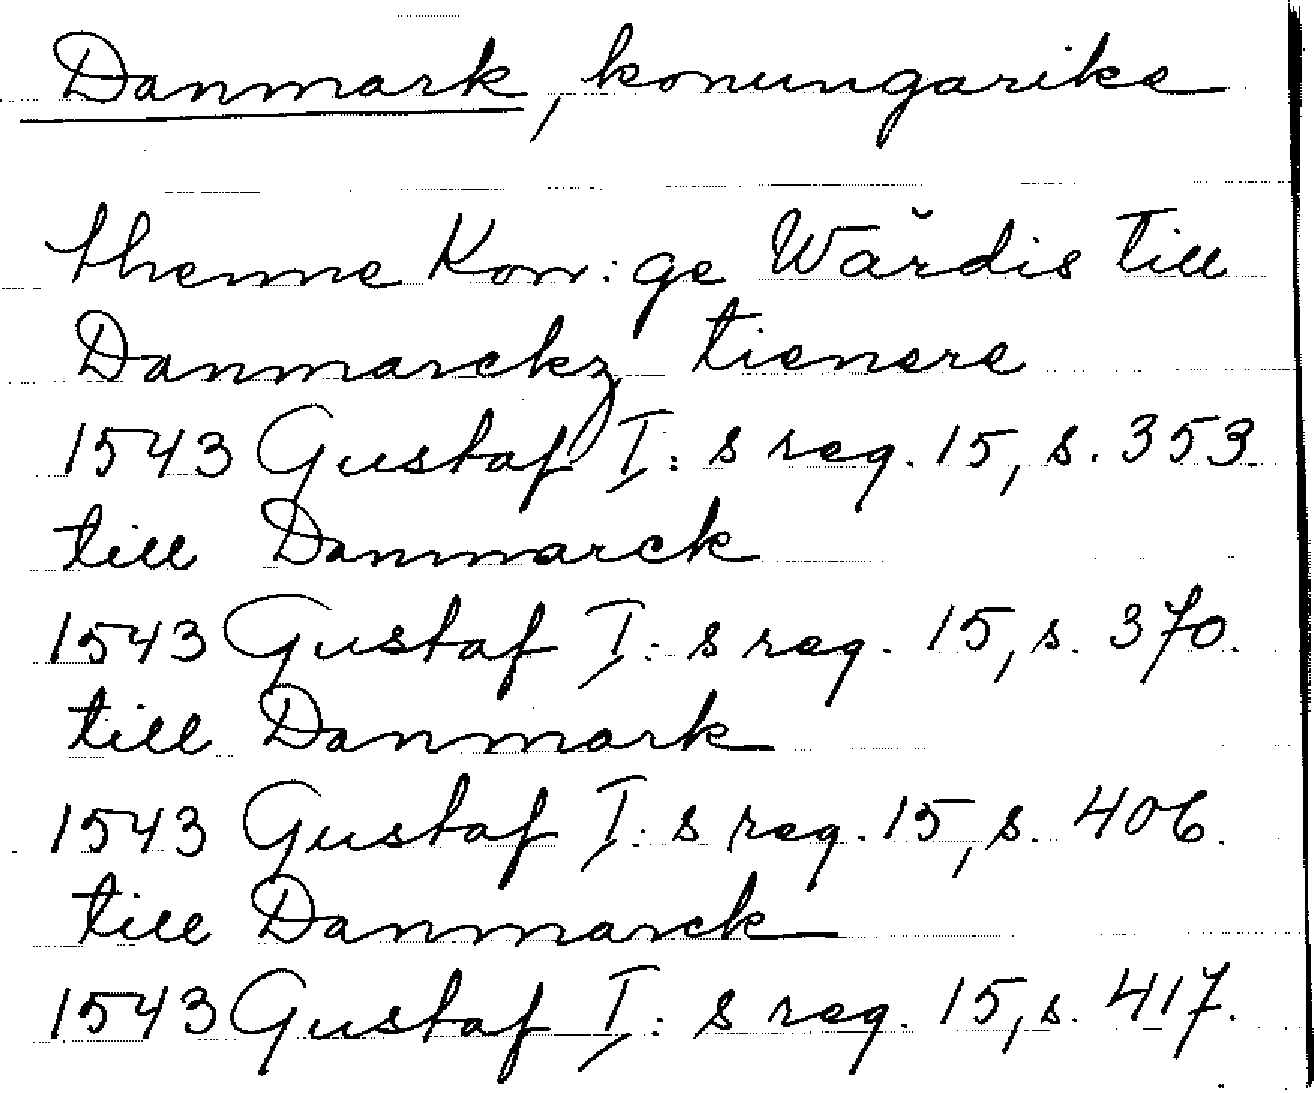 Danmark, konungarike
thenne Kon:ge Wårdis till
Danmarckz tienere
1543 Gustaf I:s reg. 15, s. 353
till Danmarck
1543 Gustaf I:s reg. 15, s. 370.
till Danmark
1543 Gustaf I:s reg. 15, s. 406.
till Danmarck
1543 Gustaf I:s reg. 15, s. 417.